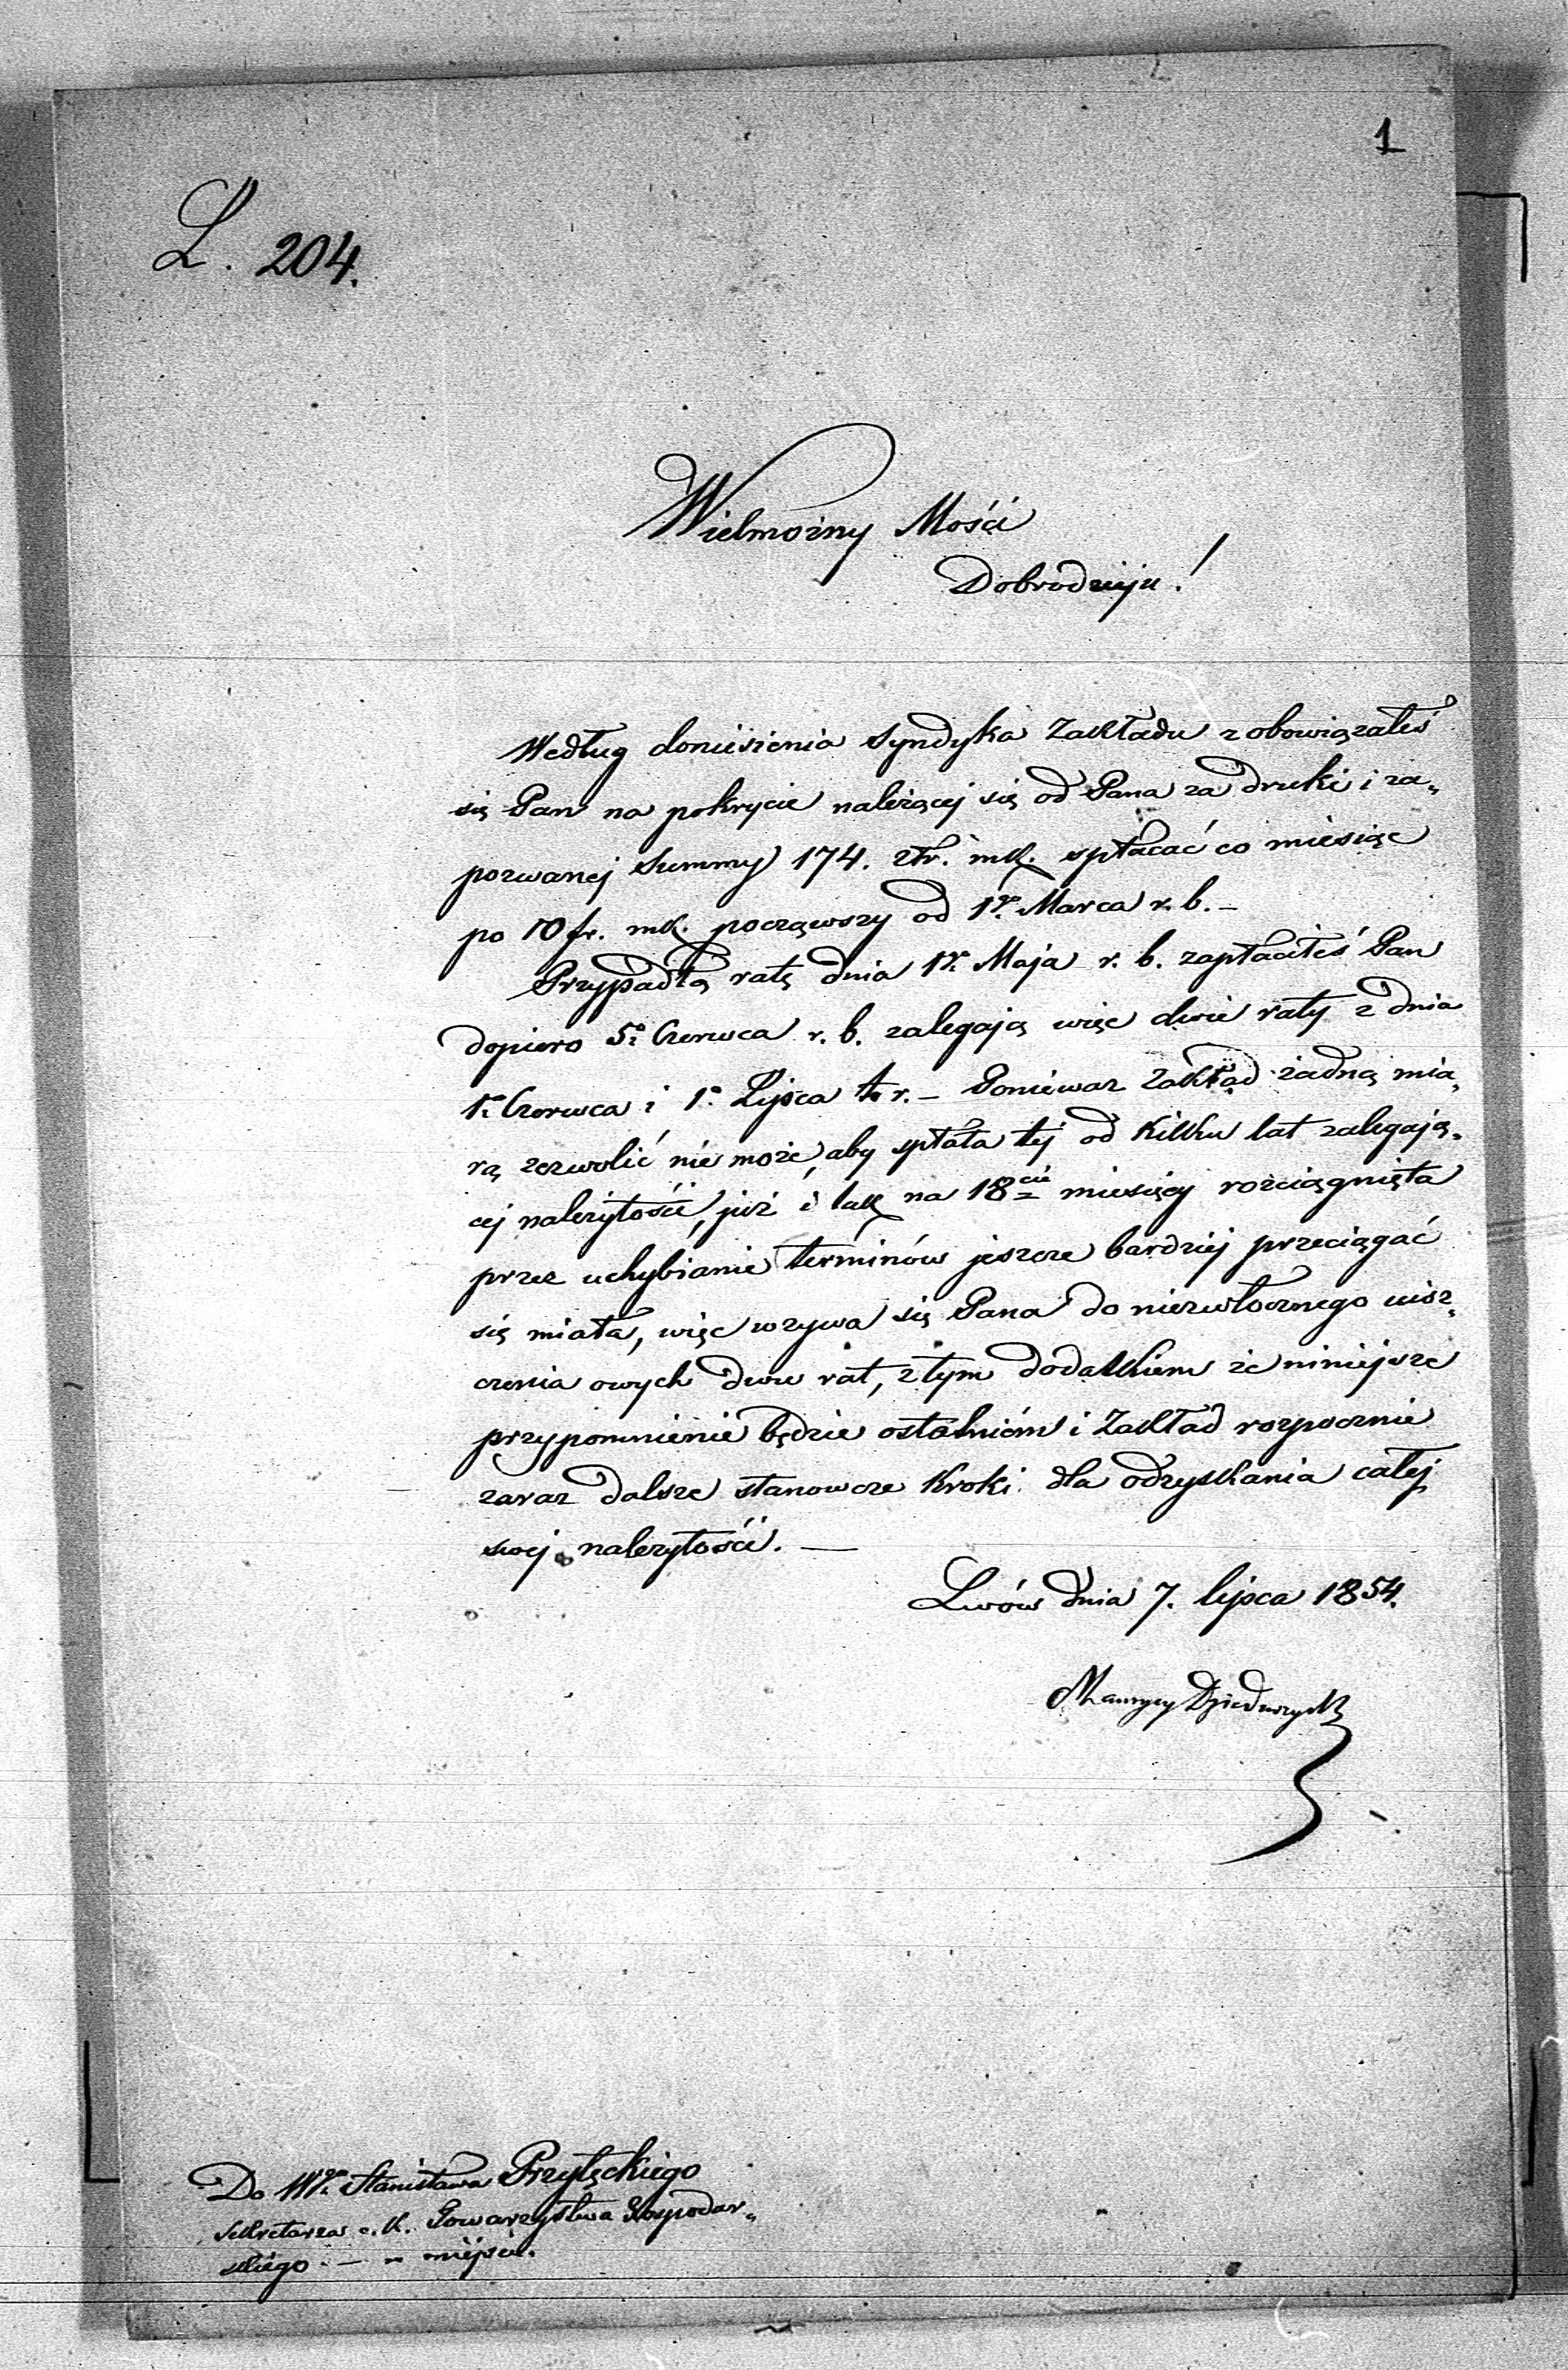 1
L. 204.
Wielmożny Mości
Dobrodzieju!
Według doniesienia Syndyka Zakładu zobowiązałeś
się Pan na pokrycie należącej się od Pana za druki i za„
pozwanej Summy 174. złr. mk. spłacać co miesiąc
po 10 fr. mk. począwszy od 1go Marca r. b. –
Przypadłą ratę dnia 1go Maja r. b. zapłaciłeś Pan
dopiero 5o Czerwca r. b. zalegają więc dwie raty z dnia
1o Czerwca i 1o Lipca t. r. – Ponieważ Zakład żadną mia„
rą zezwolić nie może, aby spłata tej od kilku lat zalegają„
cej należytości, już i tak na 18cie miesięcy rozciągnięta
przez uchybianie terminów jeszcze bardziej przeciągać
się miała, więc wzywa się Pana do niezwłocznego uisz„
czenia owych dwu rat, z tym dodatkiem że niniejsze
przypomnienie będzie ostatniém i Zakład rozpocznie
zaraz dalsze stanowcze kroki dla odzyskania całej
swej należytości. —
Lwów dnia 7. lipca 1854.
Maurycy Dzieduszycki
Do Wgo Stanisława Przyłęckiego
Sekretarza c. k. Towarzystwa Gospodar„
skiego. — w miejscu.